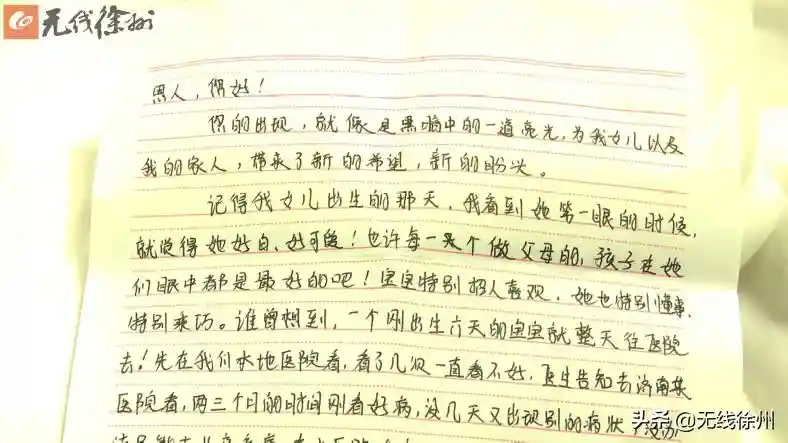 无线徐州
恩人，你好！
你的出现，就像是黑暗中的一道亮光，为我女儿以及
我的家人，带来了新的希望，新的盼头。
记得我女儿出生的那天，我看到她第一眼的时候，
就觉得她好白、好可爱！也许每一个做父母的，孩子在她
们眼中都是最好的吧！宝宝特别招人喜观，她也特别懂事，
特别乖巧。谁曾想到，一个刚出生六天的宝宝就整天往医院
去！先在我们本地医院看，看了几次一直看不好，医生告知去济南某
医院看，两三个月的时间刚看好病，没几天又出现别的病状
头条@无线徐州